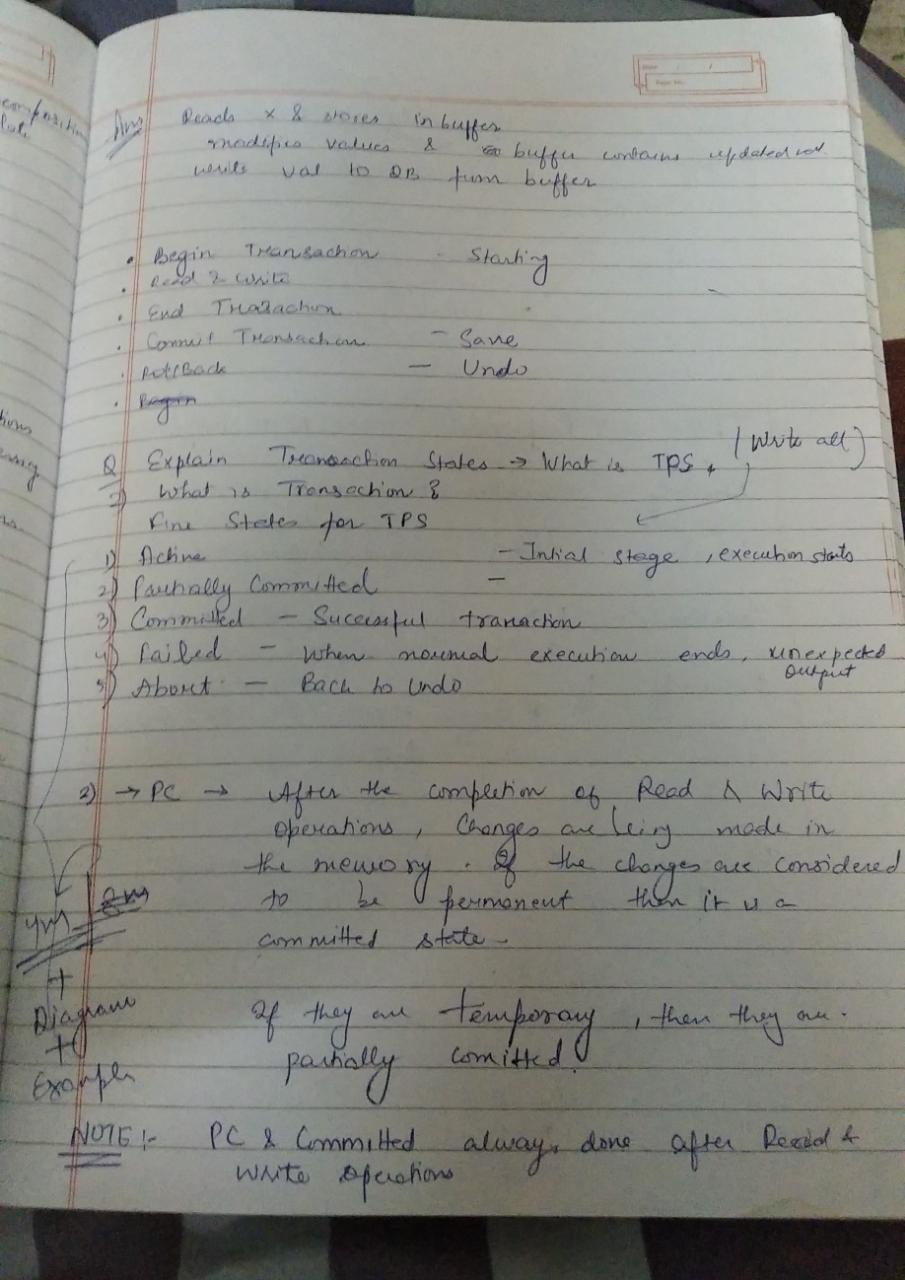 Ans Reads x & stores in buffer
modifies values & buffer contains updated val
write val to DB from buffer
• Begin Transaction - Starting
• Read & write
• End Trasaction
• Commit Transaction - Save
• RollBack - Undo
• Begin
Q Explain Transaction States → What is TPS, (Write all)
What is Transaction &
Five States for TPS
1) Active - Intial stage, execution starts
2) Partially Committed -
3) Committed - Sucessful tranaction
4) Failed - When normal execution ends, unexpected
output
5) Abort - Back to Undo
2) → PC → After the completion of Read & Write
operations, Changes are being made in
the memory. If the changes are considered
to be permanent then it is a
committed state.
4m
+
Diagram
+
Example
If they are temporary, then they are
partially comitted.
NOTE :- PC & Committed always done after Read &
Write operations